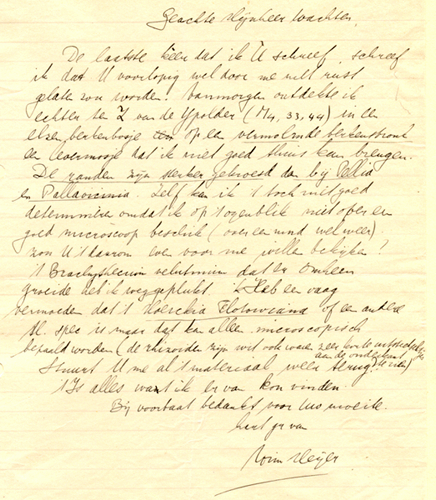 Geachte Mijnheer Wachter,
De laatste keer dat ik U schreef, schreef
ik dat U voorlopig wel door me met rust
gelaten zou worden! Vanmorgen ontdekte ik
echter ten Z van de IJpolder (M4, 33, 44) in een
elzen berkenbosje op een vermolmde berkenstronk
een levermosje dat ik niet goed thuis kan brengen.
De randen zijn sterker gekroesd dan bij Pellia
en Pallavicinia. Zelf kan ik 't toch niet goed
determineren omdat ik op 't ogenblik niet over een
goed microscoop beschik (over een mnd wel weer)
zou U 't daarom even voor me willen bekijken?
't Brachythecium velutinum dat er omheen
groeide heb ik weggeplukt. Ik heb een vaag
vermoeden dat 't Moerckia Flotowiana of een andere
M. spec is maar dat kan alleen microscopisch
bepaald worden (de rhizoiden zijn wit ook waren zeer korte
aan de onderkant te zien)
Stuurt U me al 't materiaal weer terug?
't Is alles wat ik er van kon vinden.
Bij voorbaat bedankt voor Uw moeite.
hart. gr. van
Wim Meijer